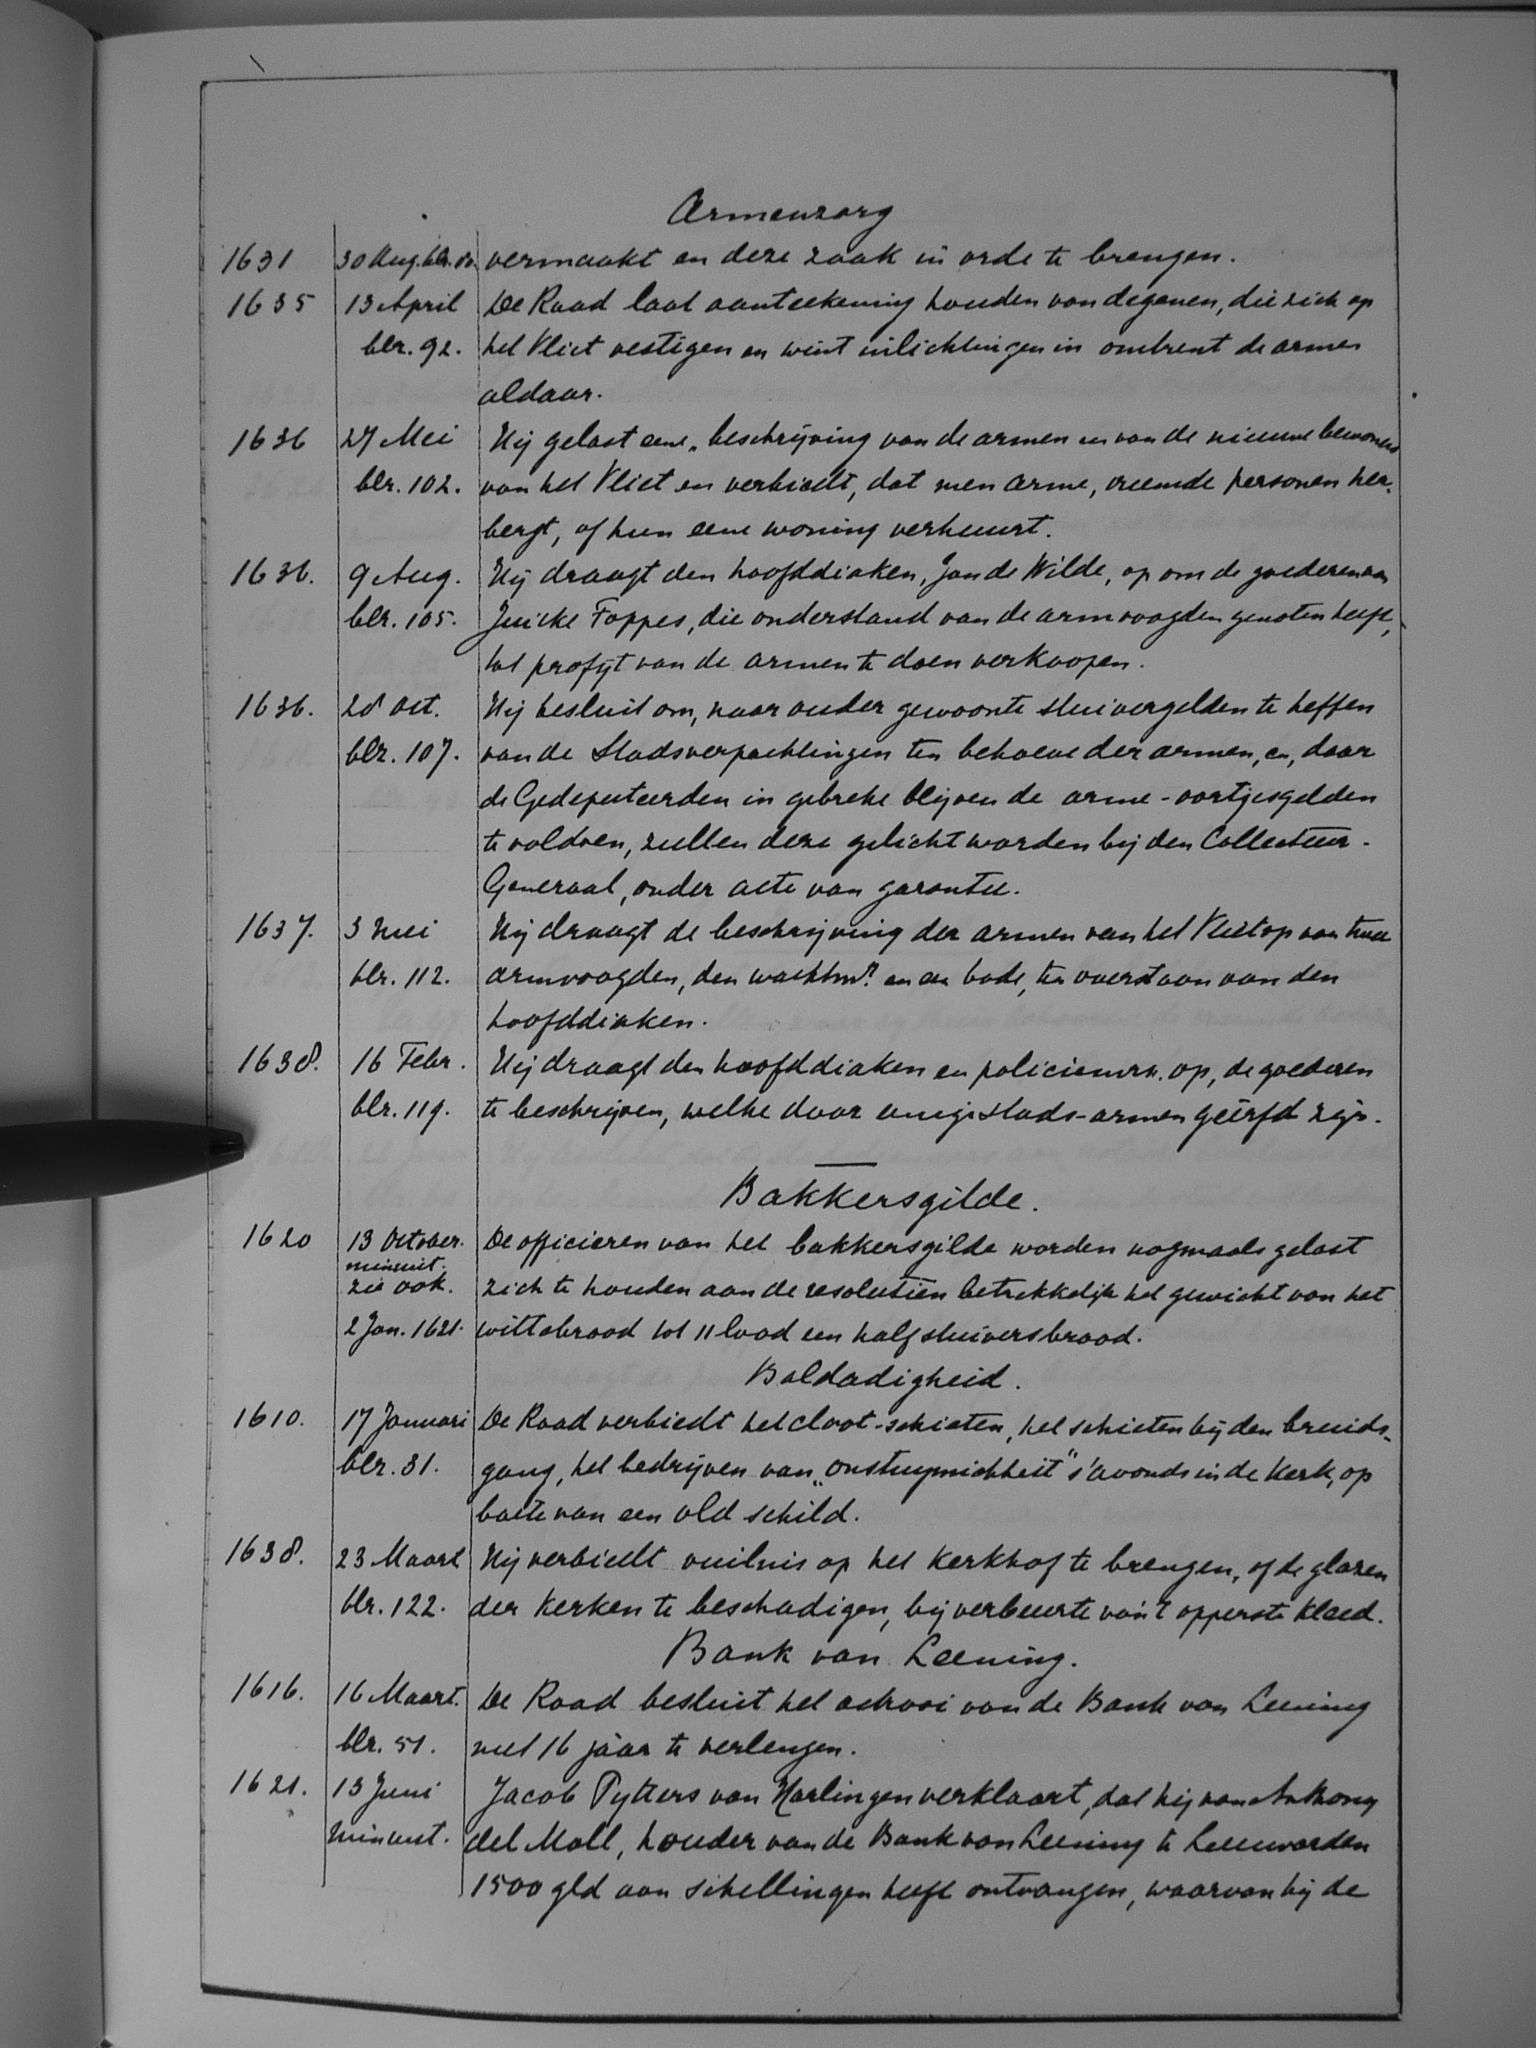 Armenzorg
1631 30 Aug. blz. vermaakt en deze zaak in orde te brengen.
1635 13 April De Raad laat aanteekening houden van degenen, die zich op
blz. 92. het Vliet vestigen en wint inlichtingen in omtrent de armen
aldaar.
1636 27 Mei Hij gelast eene „beschrijving van de armen en van de nieuwe bewoners
blz. 102. van het Vliet en verbiedt, dat men arme, vreemde personen her-
bergt, of hun eene woning verhuurt.
1636. 9 Aug. Hij draagt den hoofddiaken, Jan de Wilde, op om de goederen van
blz. 105. Juicke Foppes, die onderstand van de armvoogden genoten heeft,
tot profijt van de armen te doen verkoopen.
1636. 28 Oct. Hij besluit om, naar ouder gewoonte stuivergelden te heffen
blz. 107. van de Stadsverpachtingen ten behoeve der armen, en, daar
de Gedeputeerden in gebreke blijven de arme-oortjesgelden
te voldoen, zullen deze gelicht worden bij den Collecteur-
Generaal, onder acte van garantie.
1637. 3 Mei Hij draagt de beschrijving der armen van het Vliet op van twee
blz. 112. armvoogden, den wachtmr. en een bode, ten overstaan van den
hoofddiaken.
1638. 16 Febr. Hij draagt den hoofddiaken en policiemrn. op, de goederen
blz. 119. te beschrijven, welke door eenige stads-armen geërfd zijn.
Bakkersgilde.
1620 13 October. De officieren van het bakkersgilde worden nogmaals gelast
minuut.
zie ook. zich te houden aan de resolutiën betrekkelijk het gewicht van het
2 Jan. 1621. wittebrood tot 11 lood een half stuiversbrood.
Baldadigheid.
1610. 17 Januari De Raad verbiedt het cloot-schieten, het schieten bij den bruids-
blz. 31. gang, het bedrijven van „onstuymichheit" s'avonds in de Kerk, op
boete van een old schild.
1638. 23 Maart Hij verbiedt vuilnis op het Kerkhof te brengen, of de glazen
blz. 122. der Kerken te beschadigen, bij verbeurte van 't opperste Kleed.
Bank van Leening.
1616. 16 Maart. De Raad besluit het octrooi van de Bank van Leening
blz. 51. met 16 jaar te verlengen.
1621. 13 Juni Jacob Pytters van Harlingen verklaart, dat hij van Anthony
minuut. del Moll, houder van de Bank van Leening te Leeuwarden
1500 gld aan schellingen heeft ontvangen, waarvan hij de